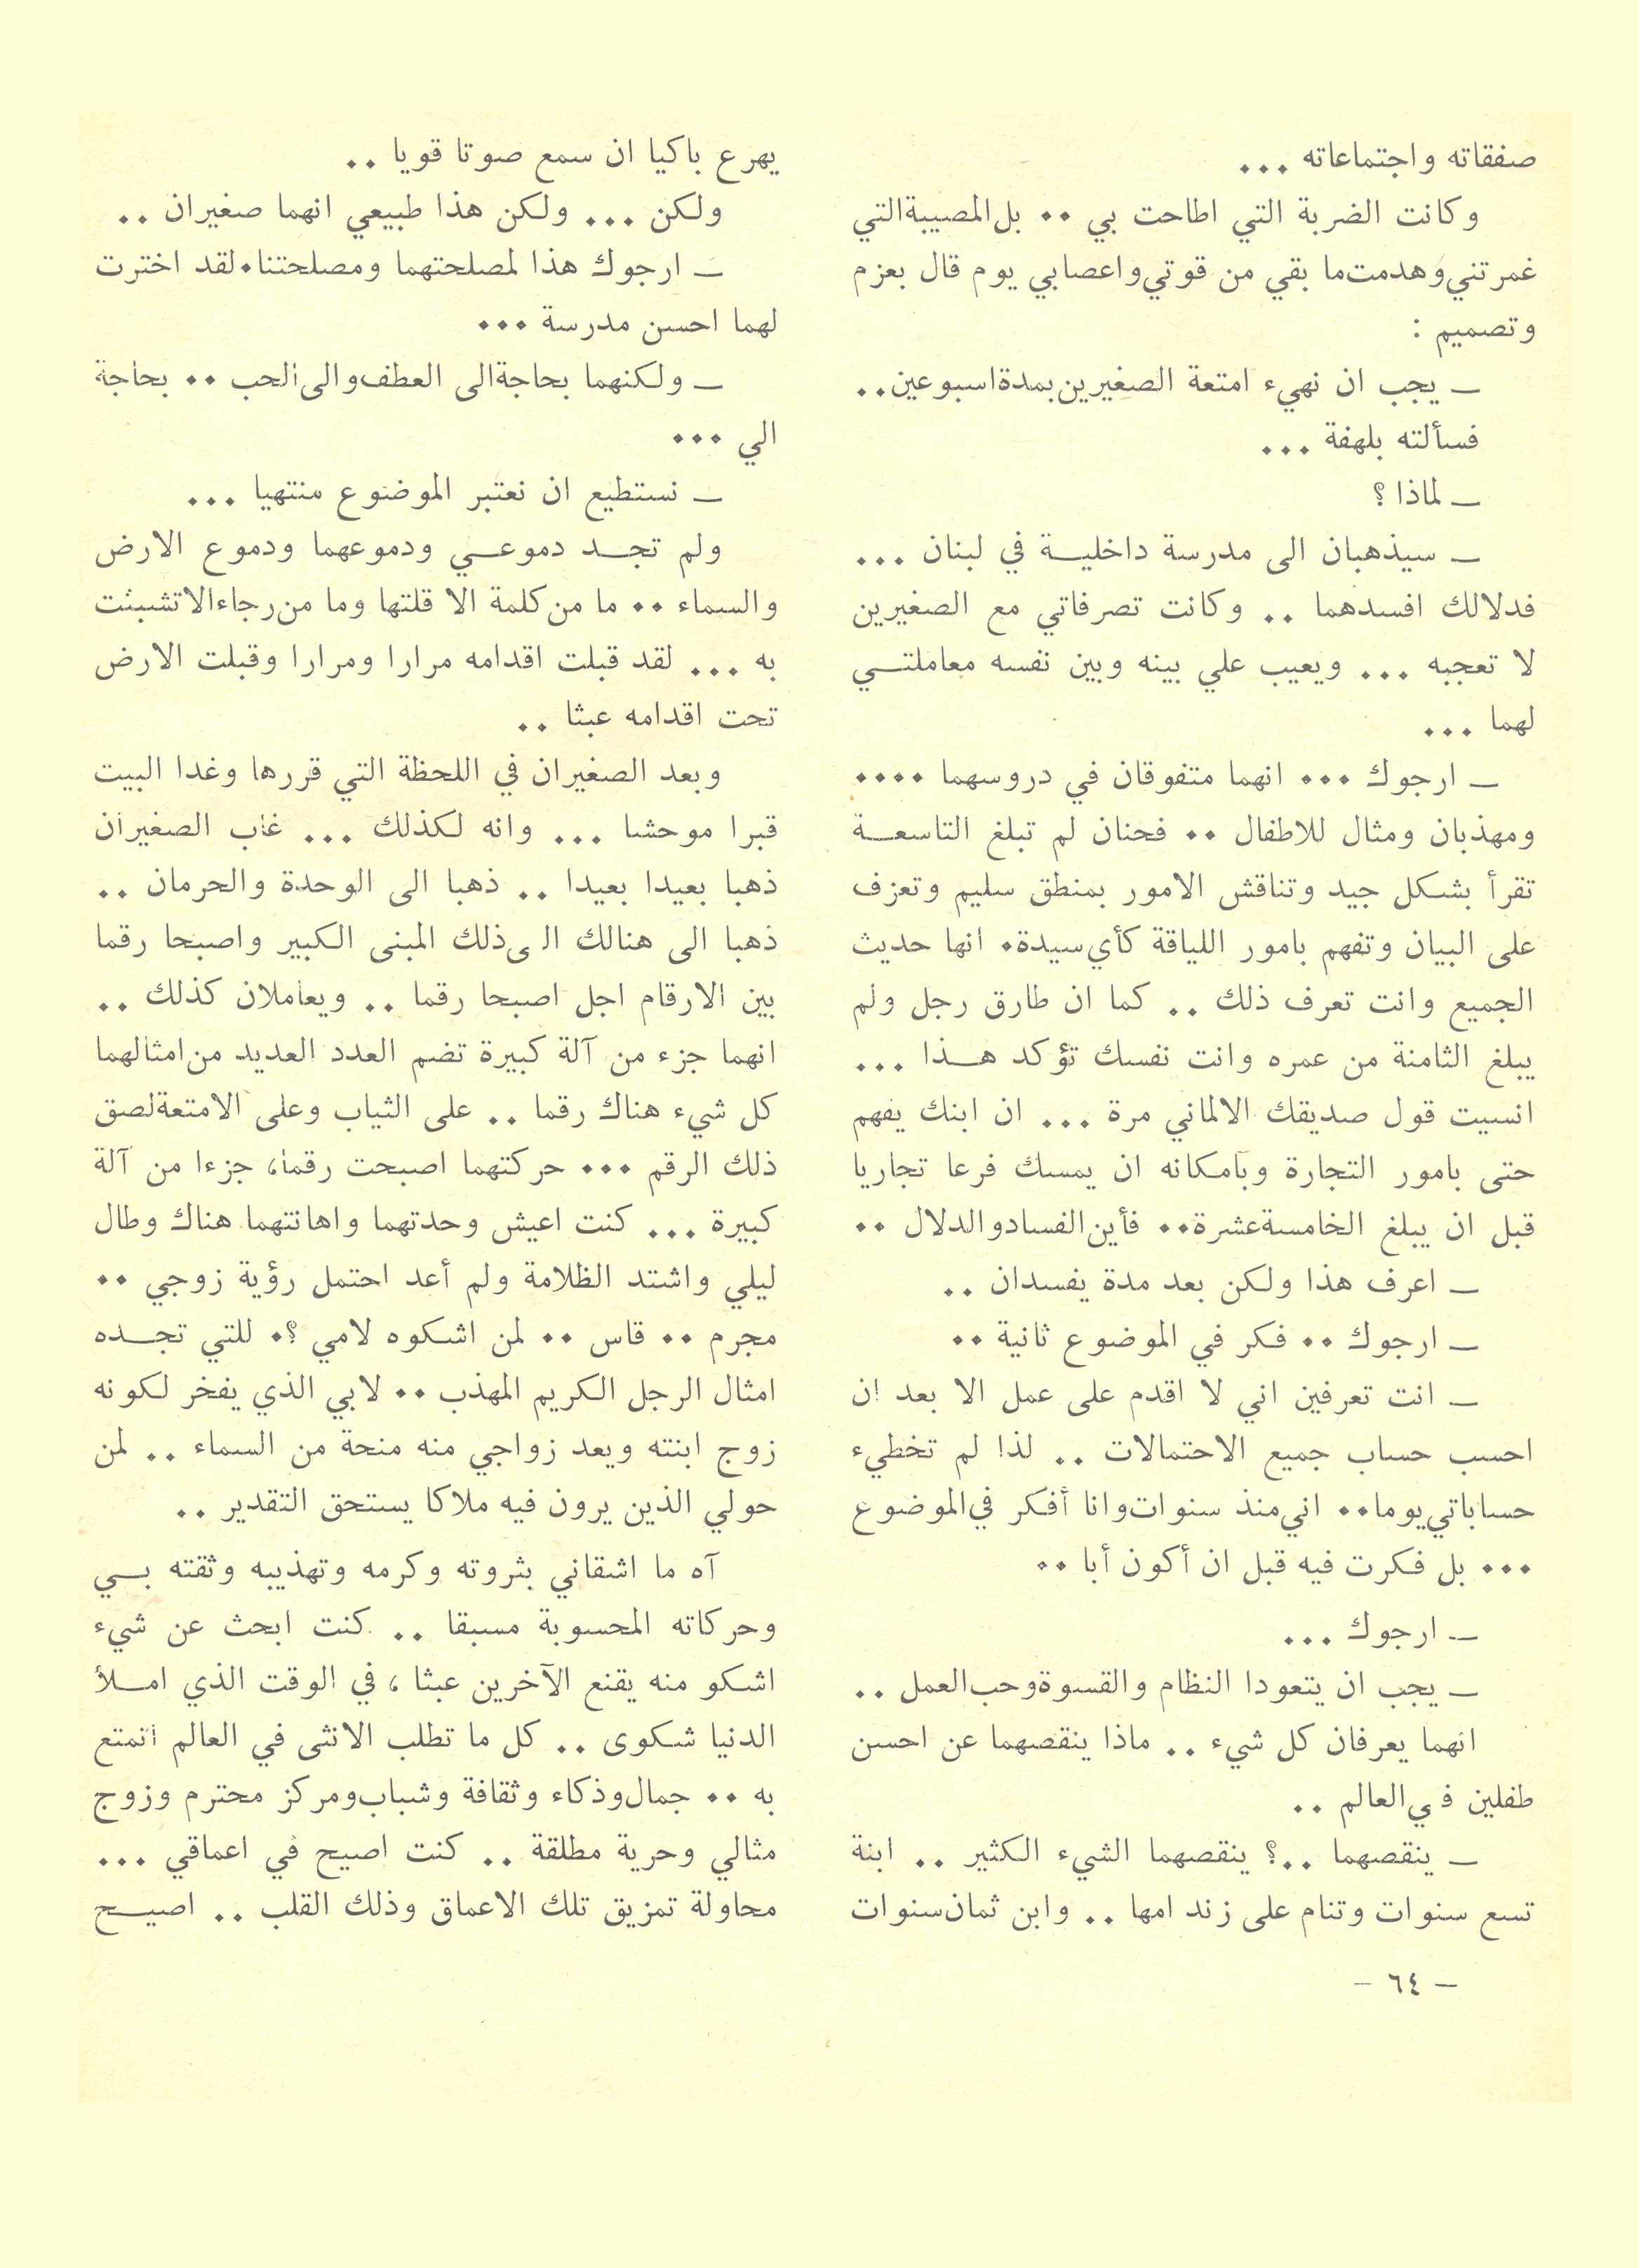 صفقاته واجتماعاته ...
وكانت الضربة التي اطاحت بي .. بل المصيبة التي
غمرتني وهدمت ما بقي من قوتي واعصابي يوم قال بعزم
وتصميم :
ــ يجب ان نهيء امتعة الصغيرين بمدة اسبوعين ..
فسألته بلهفة ...
ــ لماذا ؟
ــ سيذهبان الى مدرسة داخليــة في لبنان ...
فدلالك افسدهما .. وكانت تصرفاتي مع الصغيرين
لا تعجبه ... ويعيب علي بينه وبين نفسه معاملتــي
لهما ...
ــ ارجوك ... انهما متفوقان في دروسهما ....
ومهذبان ومثال للاطفال .. فحنان لم تبلغ التاسعــة
تقرأ بشكل جيد وتناقش الامور بمنطق سليم وتعزف
على البيان وتفهم بامور اللياقة كأي سيدة. انها حديث
الجميع وانت تعرف ذلك .. كما ان طارق رجل ولم
يبلغ الثامنة من عمره وانت نفسك تؤكد هــذا ...
انسيت قول صديقك الالماني مرة ... ان ابنك يفهم
حتى بامور التجارة وبامكانه ان يمسك فرعا تجاريا
قبل ان يبلغ الخامسة عشرة .. فأين الفساد والدلال ..
ــ اعرف هذا ولكن بعد مدة يفسدان ..
ــ ارجوك .. فكر في الموضوع ثانية ..
ــ انت تعرفين اني لا اقدم على عمل الا بعد ان
احسب حساب جميع الاحتمالات .. لذا لم تخطيء
حساباتي يوما .. اني منذ سنوات وانا أفكر في الموضوع
... بل فكرت فيه قبل ان أكون أبا ..
ــ ارجوك ...
ــ يجب ان يتعودا النظام والقسوة وحب العمل ..
انهما يعرفان كل شيء .. ماذا ينقصهما عن احسن
طفلين في العالم ..
ــ ينقصهما ..؟ ينقصهما الشيء الكثير .. ابنة
تسع سنوات وتنام على زند امها .. وابن ثمان سنوات
يهرع باكيا ان سمع صوتا قويا ..
ولكن ... ولكن هذا طبيعي انهما صغيران ..
ــ ارجوك هذا لمصلحتهما ومصلحتنا. لقد اخترت
لهما احسن مدرسة ...
ــ ولكنهما بحاجة الى العطف والى الحب .. بحاجة
الي ...
ــ نستطيع ان نعتبر الموضوع منتهيا ...
ولم تجــد دموعــي ودموعهما ودموع الارض
والسماء .. ما من كلمة الا قلتها وما من رجاء الا تشبثت
به ... لقد قبلت اقدامه مرارا ومرارا وقبلت الارض
تحت اقدامه عبثا ..
وبعد الصغيران في اللحظة التي قررها وغدا البيت
قبرا موحشا ... وانه لكذلك ... غاب الصغيران
ذهبا بعيدا بعيدا .. ذهبا الى الوحدة والحرمان ..
ذهبا الى هنالك الى ذلك المبنى الكبير واصبحا رقما
بين الارقام اجل اصبحا رقما .. ويعاملان كذلك ..
انهما جزء من آلة كبيرة تضم العدد العديد من امثالهما
كل شيء هناك رقما .. على الثياب وعلى الامتعة لصق
ذلك الرقم ... حركتهما اصبحت رقما، جزءا من آلة
كبيرة ... كنت اعيش وحدتهما واهانتهما هناك وطال
ليلي واشتد الظلامة ولم أعد احتمل رؤية زوجي ..
مجرم .. قاس .. لمن اشكوه لامي ؟. للتي تجــده
امثال الرجل الكريم المهذب .. لابي الذي يفخر لكونه
زوج ابنته ويعد زواجي منه منحة من السماء .. لمن
حولي الذين يرون فيه ملاكا يستحق التقدير ..
آه ما اشقاني بثروته وكرمه وتهذيبه وثقته بــي
وحركاته المحسوبة مسبقا .. كنت ابحث عن شيء
اشكو منه يقنع الآخرين عبثا ، في الوقت الذي امــلأ
الدنيا شكوى .. كل ما تطلب الانثى في العالم اتمتع
به .. جمال وذكاء وثقافة وشباب ومركز محترم وزوج
مثالي وحرية مطلقة .. كنت اصيح في اعماقي ...
محاولة تمزيق تلك الاعماق وذلك القلب .. اصيــح
– ٦٤ –